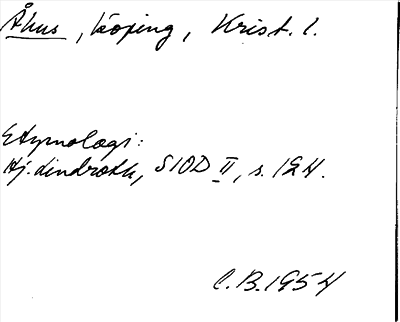 Åhus, köping, Krist. l.
Etymologi:
Hj. Lindroth, SIOD II, s. 124.
C.B. 1954